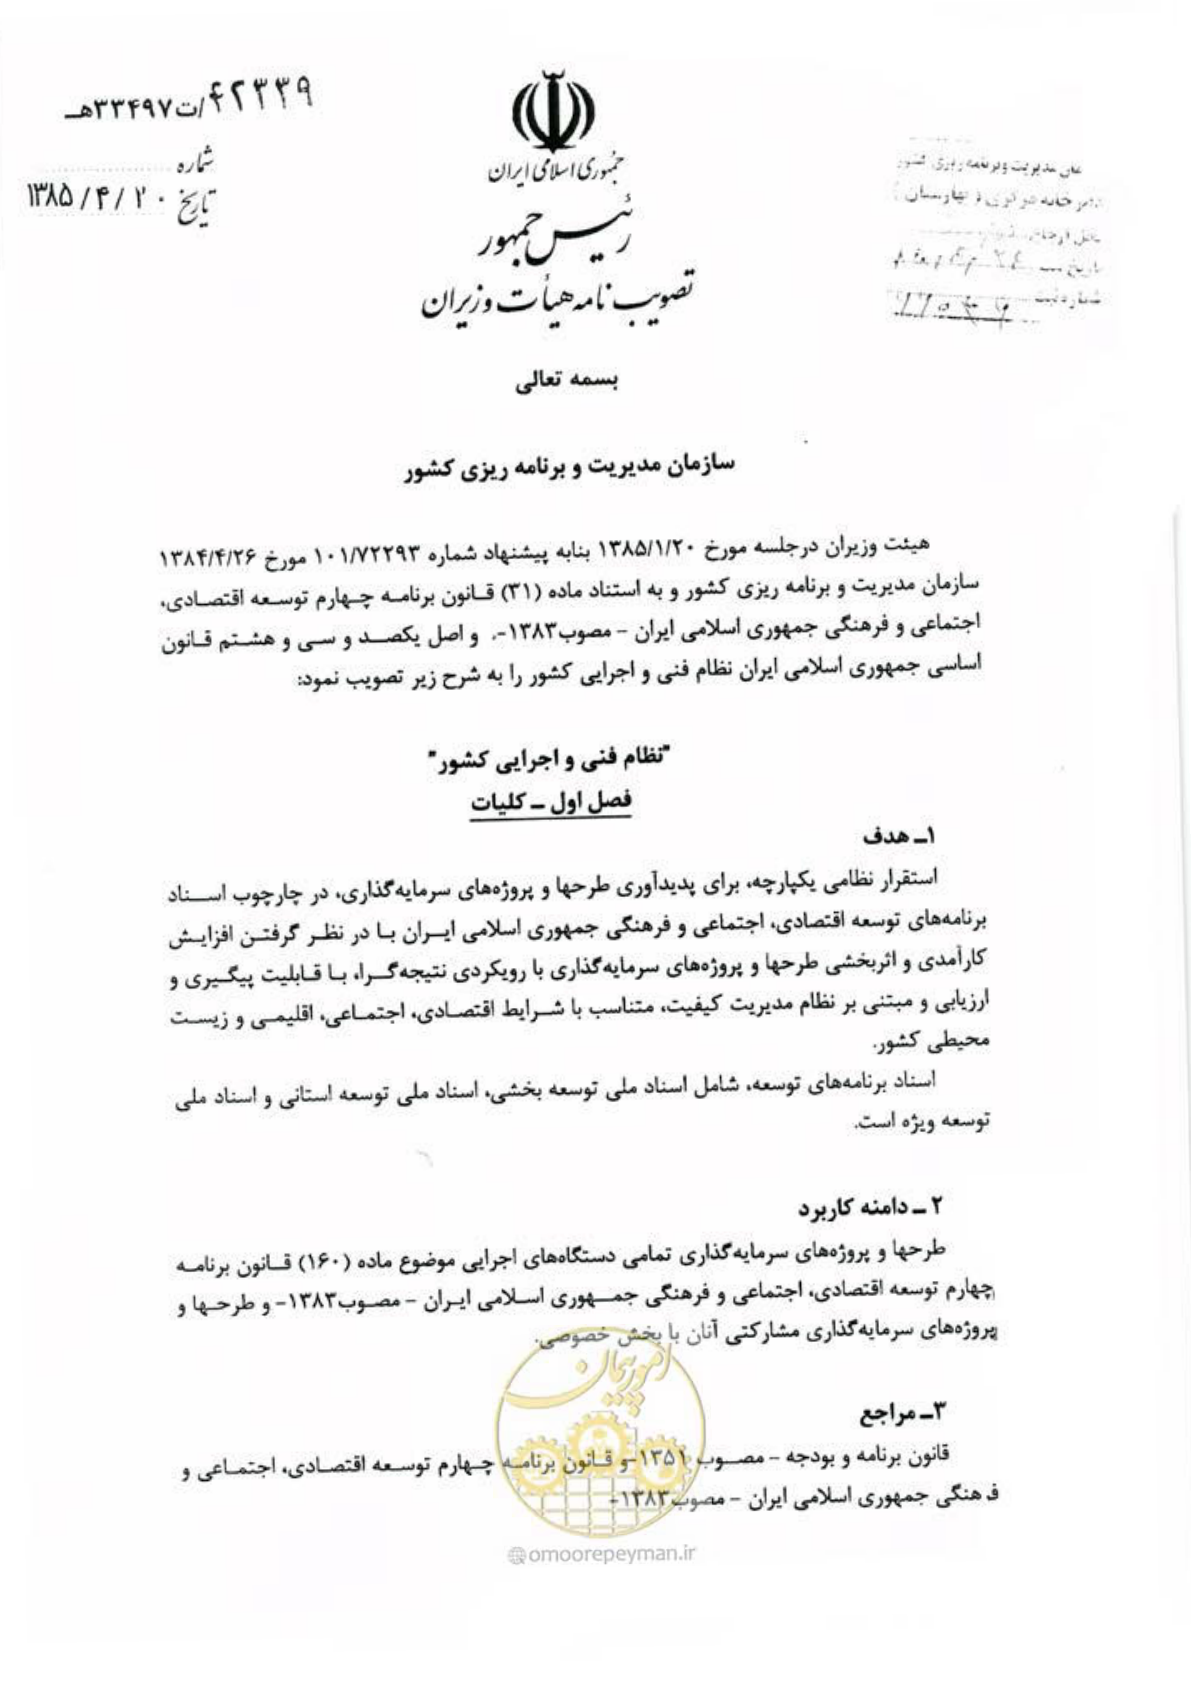 ۴۲۳۳۹/ت۳۳۴۹۷هـ
شماره
تاریخ ۱۳۸۵/۴/۲۰
جمهوری اسلامی ایران
رئیس جمهور
تصویب نامه هیأت وزیران
مدیریت و برنامه ریزی کشور
تاریخ
شماره ثبت
بسمه تعالی
سازمان مدیریت و برنامه ریزی کشور
هیئت وزیران درجلسه مورخ ۱۳۸۵/۱/۲۰ بنابه پیشنهاد شماره ۱۰۱/۷۲۲۹۳ مورخ ۱۳۸۴/۴/۲۶
سازمان مدیریت و برنامه ریزی کشور و به استناد ماده (۳۱) قانون برنامه چهارم توسعه اقتصادی،
اجتماعی و فرهنگی جمهوری اسلامی ایران – مصوب۱۳۸۳-. و اصل یکصد و سی و هشتم قانون
اساسی جمهوری اسلامی ایران نظام فنی و اجرایی کشور را به شرح زیر تصویب نمود:
"نظام فنی و اجرایی کشور"
فصل اول – کلیات
۱ـ هدف
استقرار نظامی یکپارچه، برای پدیدآوری طرحها و پروژه‌های سرمایه‌گذاری، در چارچوب اسناد
برنامه‌های توسعه اقتصادی، اجتماعی و فرهنگی جمهوری اسلامی ایران با در نظر گرفتن افزایش
کارآمدی و اثربخشی طرحها و پروژه‌های سرمایه‌گذاری با رویکردی نتیجه‌گرا، با قابلیت پیگیری و
ارزیابی و مبتنی بر نظام مدیریت کیفیت، متناسب با شرایط اقتصادی، اجتماعی، اقلیمی و زیست
محیطی کشور.
اسناد برنامه‌های توسعه، شامل اسناد ملی توسعه بخشی، اسناد ملی توسعه استانی و اسناد ملی
توسعه ویژه است.
۲ – دامنه کاربرد
طرحها و پروژه‌های سرمایه‌گذاری تمامی دستگاه‌های اجرایی موضوع ماده (۱۶۰) قانون برنامه
چهارم توسعه اقتصادی، اجتماعی و فرهنگی جمهوری اسلامی ایران – مصوب۱۳۸۳- و طرحها و
پروژه‌های سرمایه‌گذاری مشارکتی آنان با بخش خصوصی.
امور پیمان
۳ـ مراجع
قانون برنامه و بودجه – مصوب ۱۳۵۱-و قانون برنامه چهارم توسعه اقتصادی، اجتماعی و
فرهنگی جمهوری اسلامی ایران – مصوب۱۳۸۳-
@omoorepeyman.ir